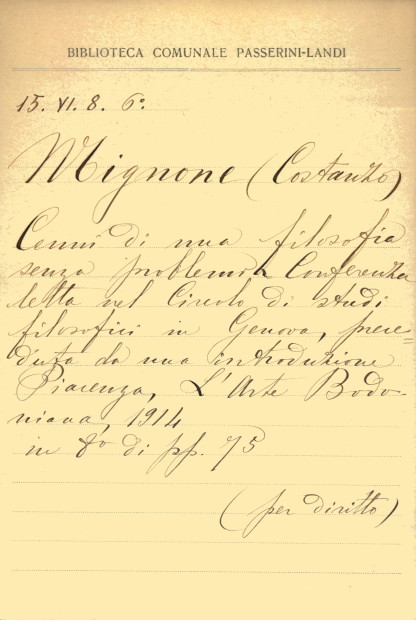 BIBLIOTECA COMUNALE PASSERINI-LANDI
15. VI. 8. 6º
Mignone (Costanzo)
Cenni di una filosofia
senza problemi Conferenza
letta nel Circolo di studi
filosofici in Genova, prece=
duta da una introduzione
Piacenza, L'Arte Bodo-
niana, 1914
in 8º di pp. 75
(per diritto)